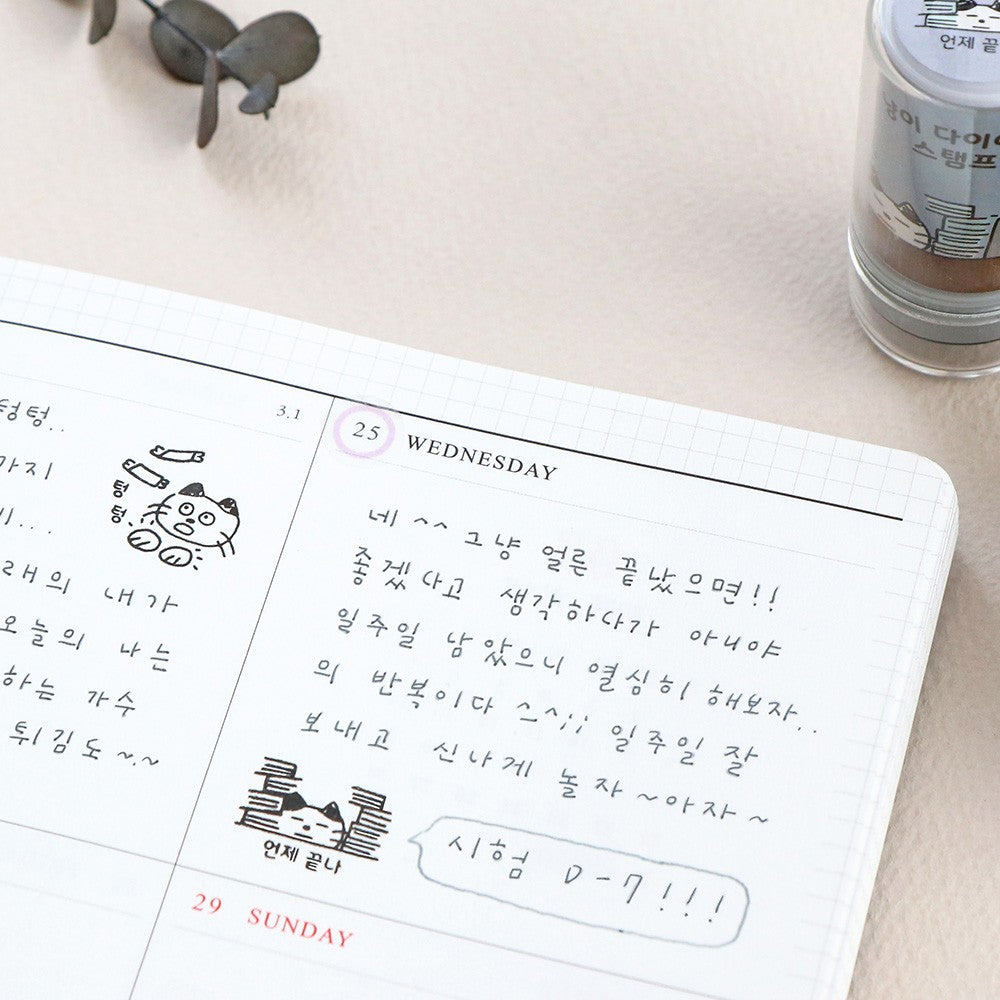 언제 끝
냥이 다이어
스탬프
텅텅..
3.1
까지
텅
텅
내가
오늘의 나는
하는 가수
튀김도~.~
25 WEDNESDAY
네 ^^ 그냥 얼른 끝났으면!!
좋겠다고 생각하다가 아니야
일주일 남았으니 열심히 해보자..
의 반복이다 ^^;; 일주일 잘
보내고 신나게 놀자~아자~
언제 끝나
시험 D-7!!!
29 SUNDAY